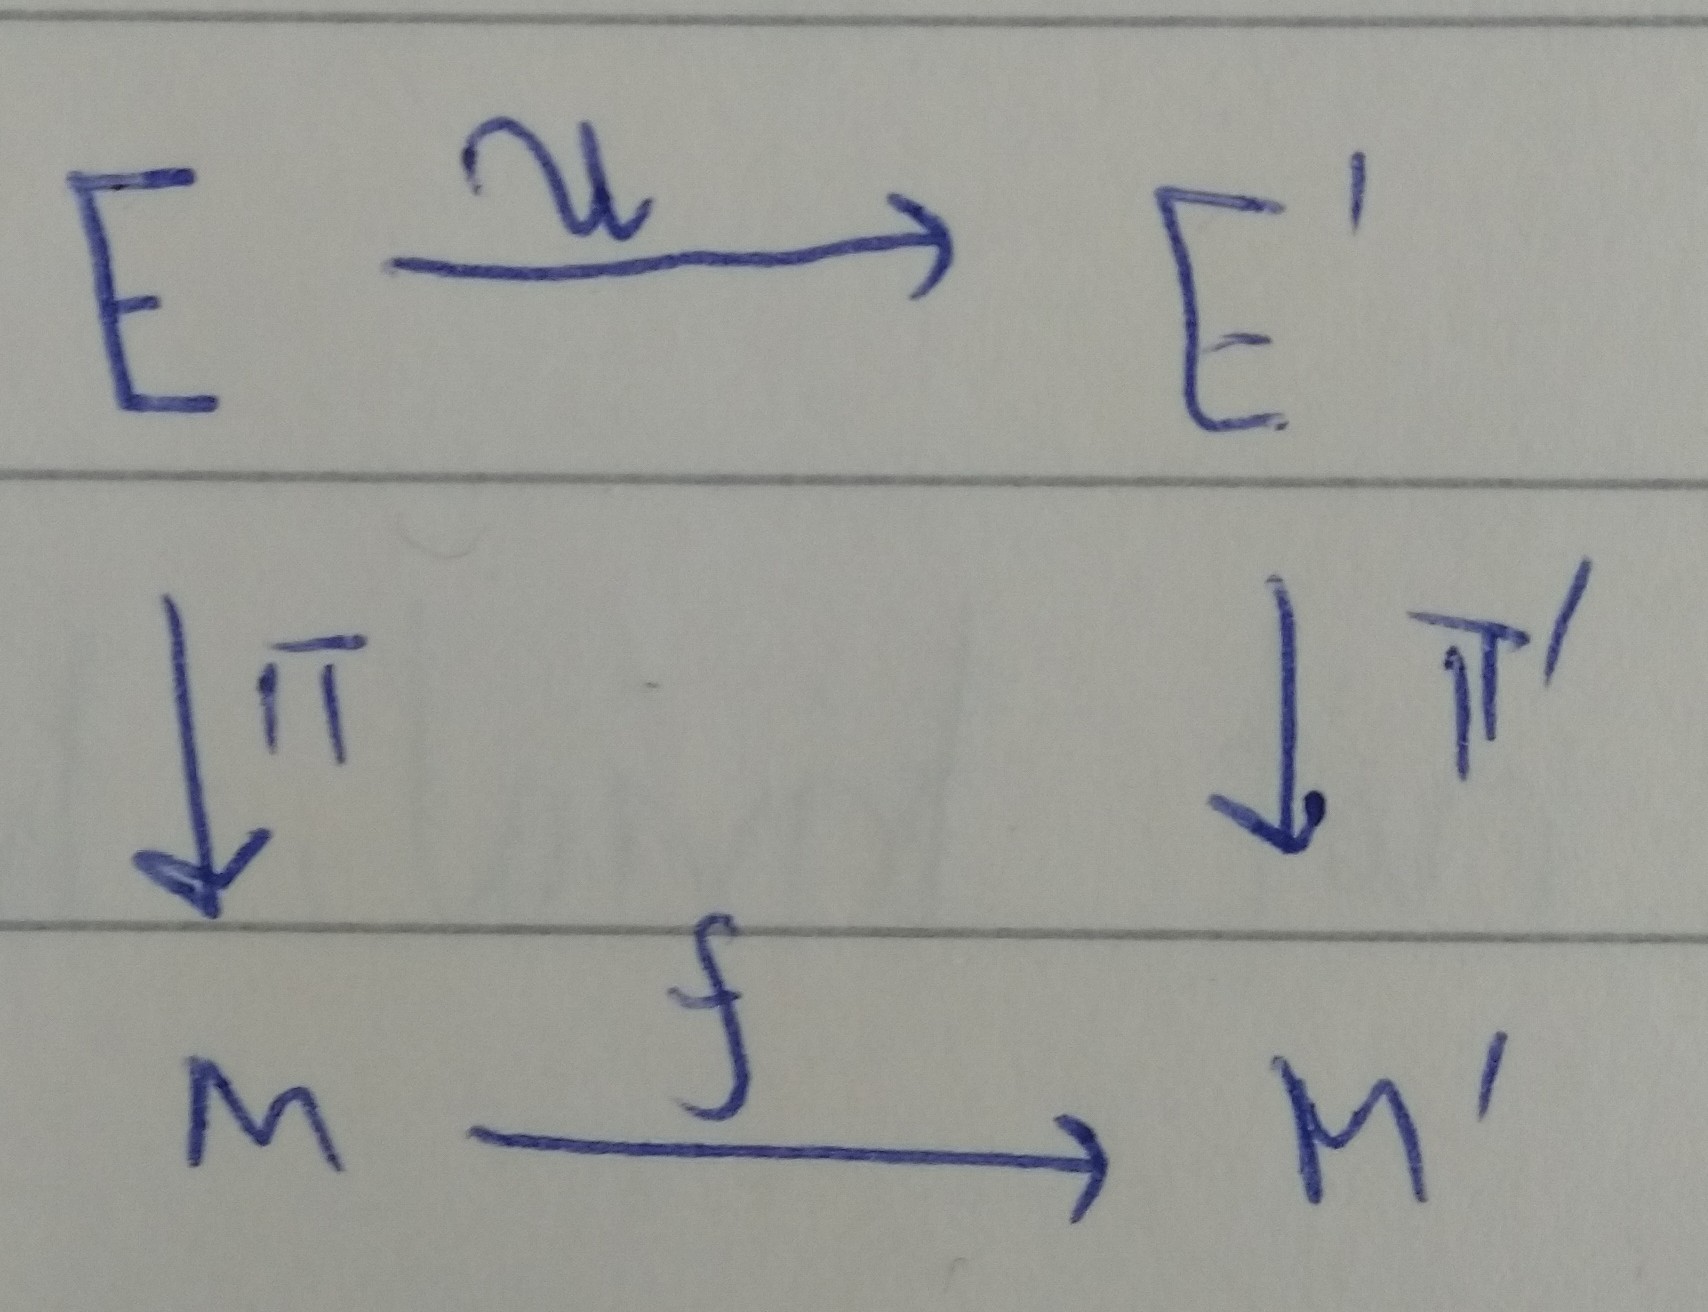 E u E'
π π'
M f M'